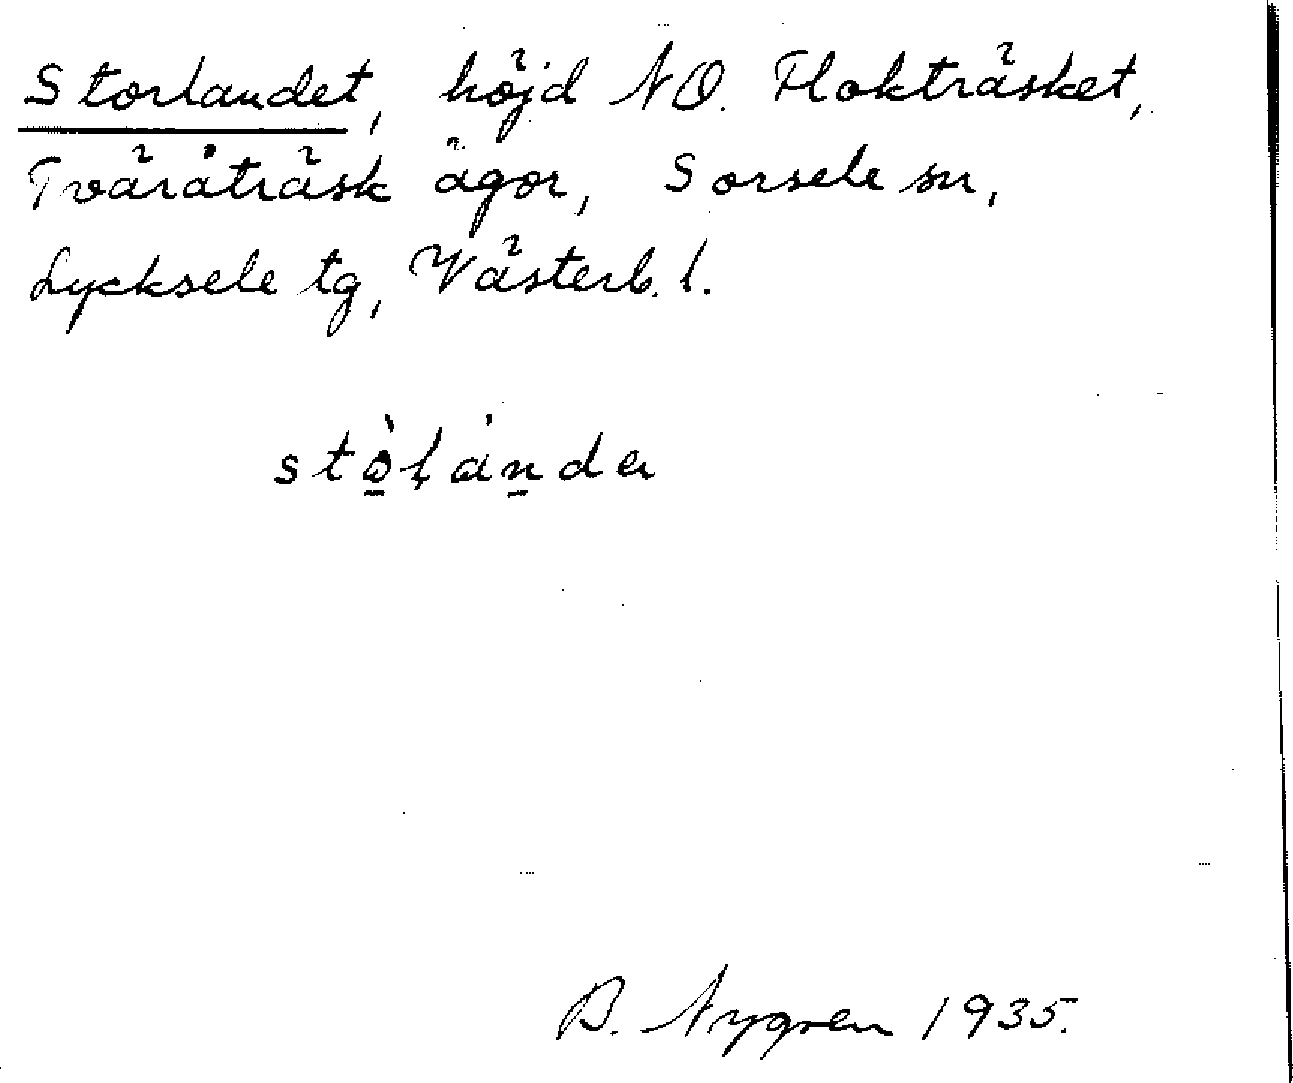 Storlandet, höjd NO. Flokträsket,
Tväråträsk ägor, Sorsele sn,
Lycksele tg, Västerb. l.
B. Nygren 1935.